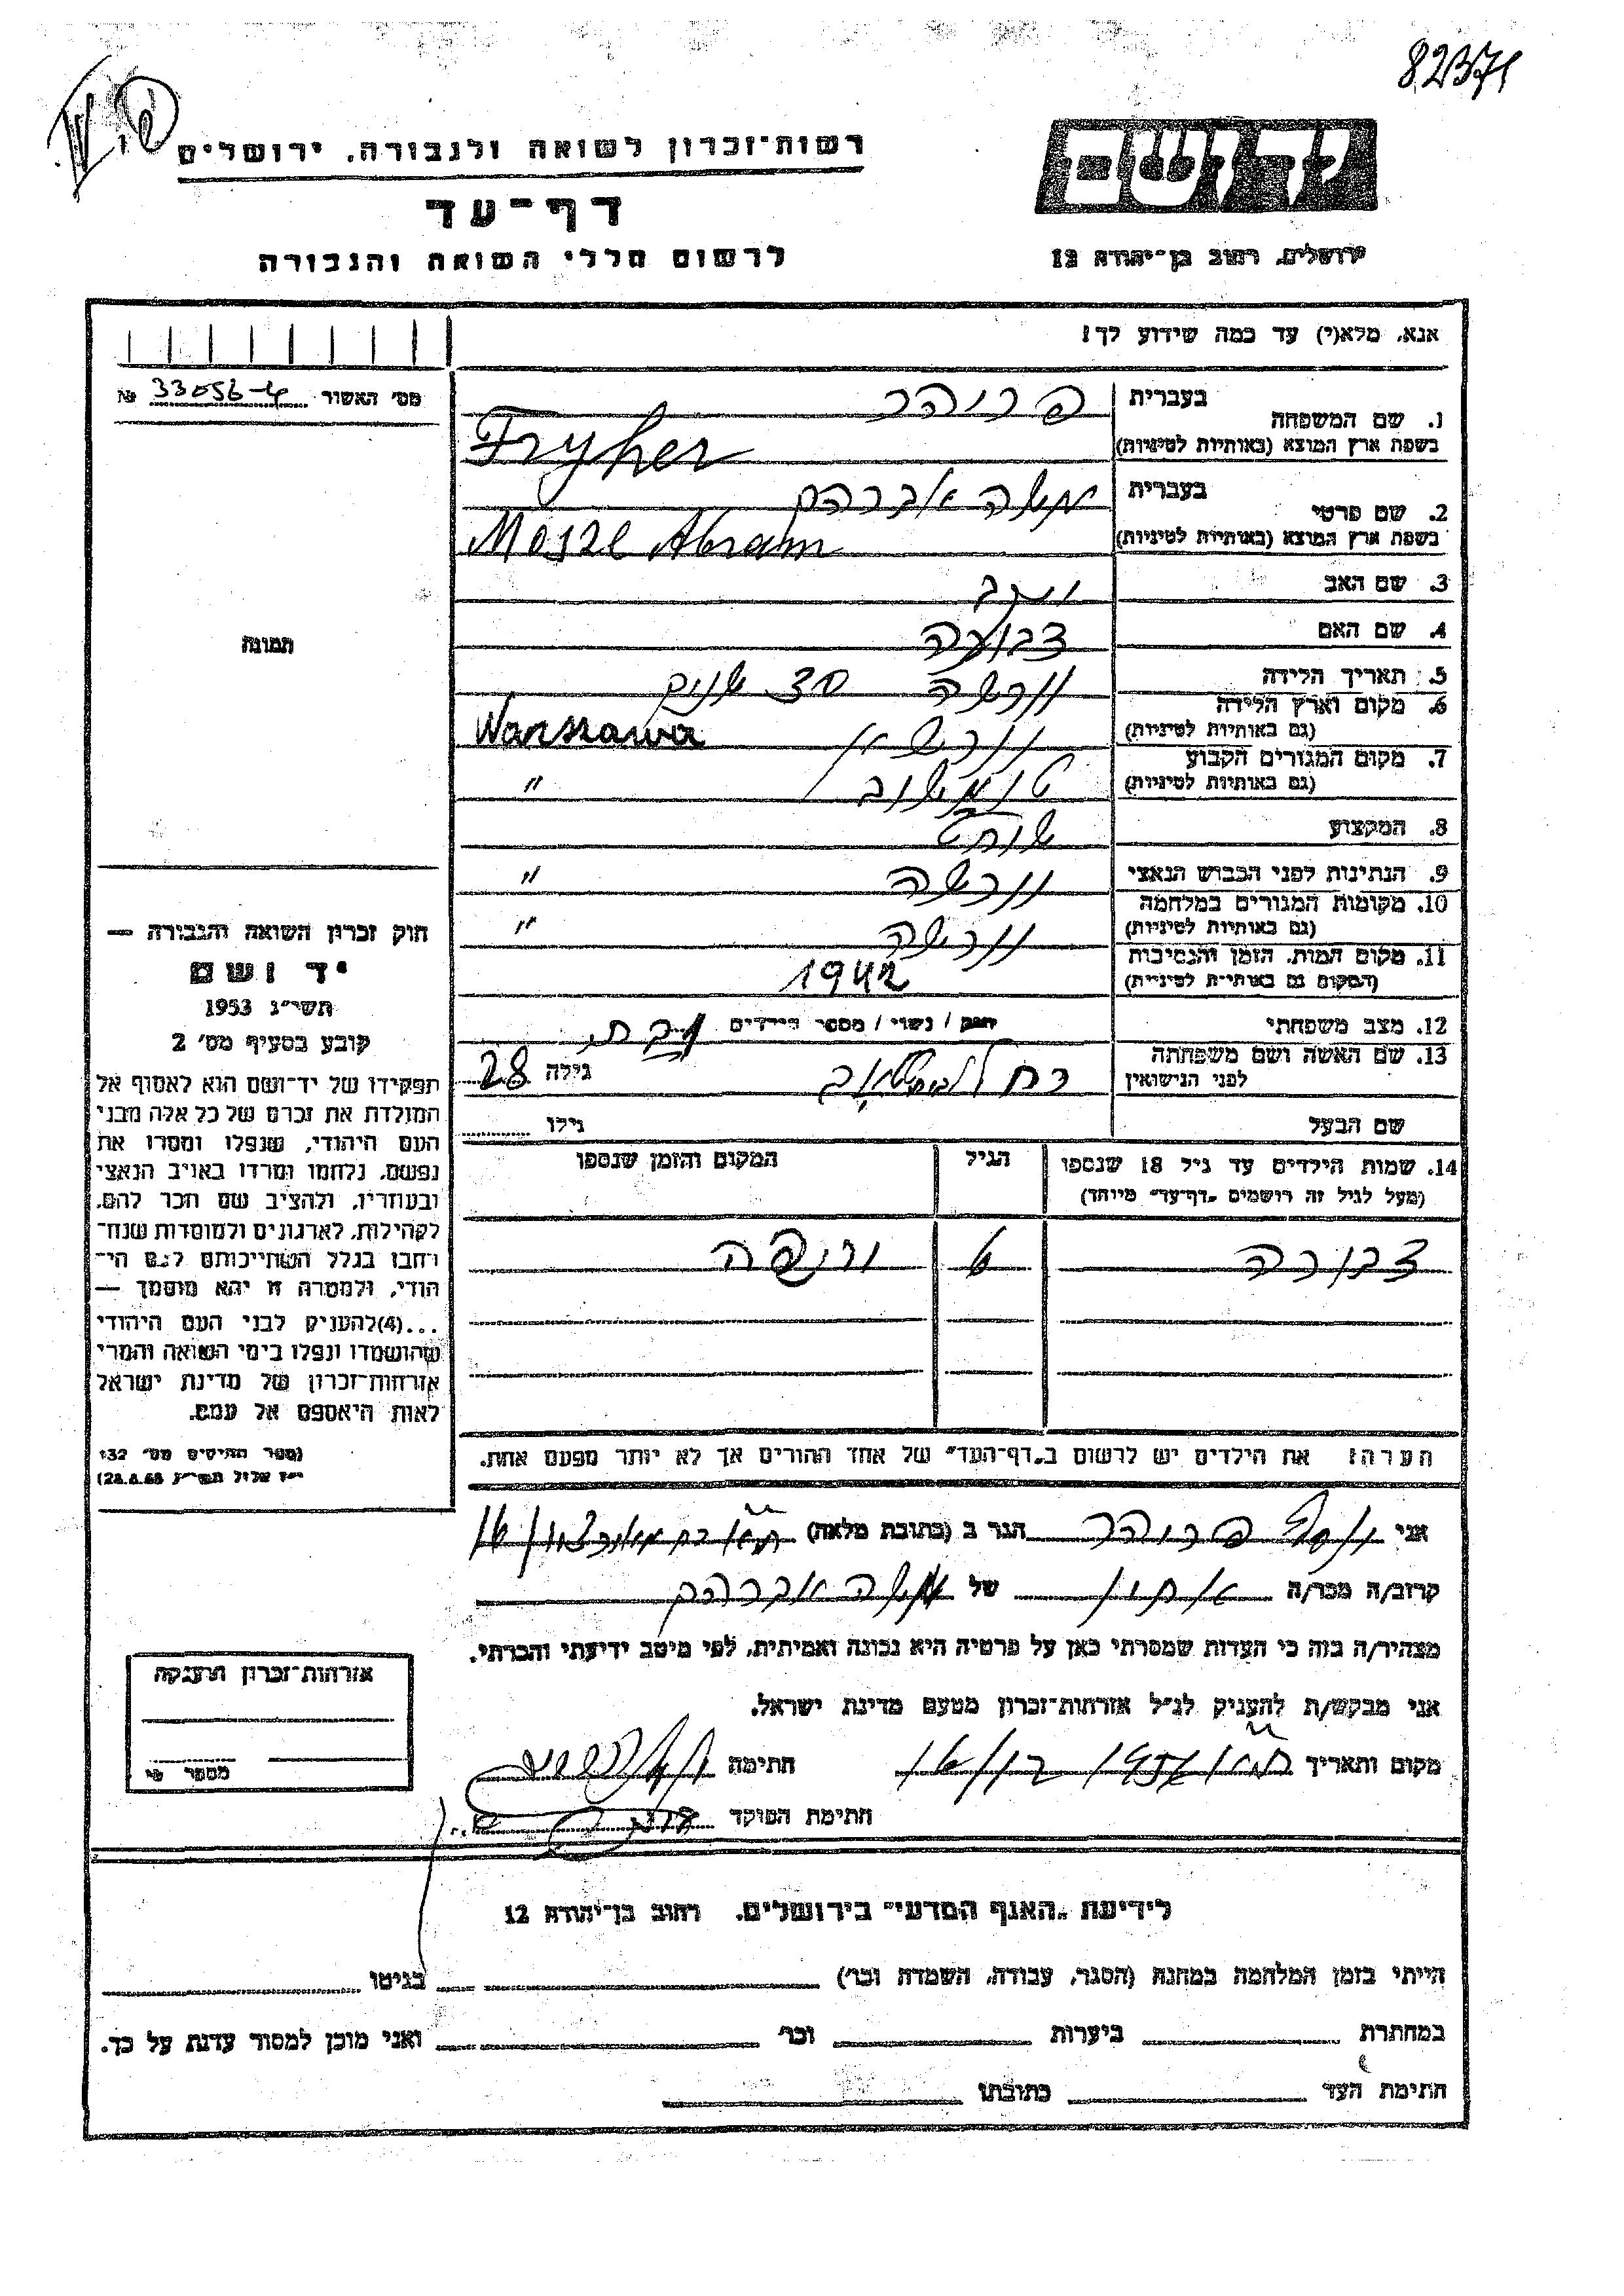 82371
רשות־זכרון לשואה ולגבורה, ירושלים
דף־עד
לרשום חללי השואה והגבורה
ירושלים, רחוב בן־יהודה 12
אנא, מלא(י) עד כמה שידוע לך!
מס׳ האשור 33056-4 №
1. שם המשפחה
בעברית פריהר
בשפת ארץ המוצא (באותיות לטיניות) Fryher
2. שם פרטי
בעברית משה אברהם
בשפת ארץ המוצא (באותיות לטיניות) Mosze Abram
3. שם האב
4. שם האם
5. תאריך הלידה ורשה שנים
6. מקום וארץ הלידה
(גם באותיות לטיניות) Warszawa
7. מקום המגורים הקבוע
(גם באותיות לטיניות) "
8. המקצוע שוחט
9. הנתינות לפני הכבוש הנאצי ורשה "
10. מקומות המגורים במלחמה
(גם באותיות לטיניות) ורשה "
11. מקום המות, הזמן והנסיבות
(המקום גם באותיות לטיניות) 1942
12. מצב משפחתי רווק / נשוי / מספר הילדים
13. שם האשה ושם משפחתה
לפני הנישואין גילה 28
שם הבעל גילו
14. שמות הילדים עד גיל 18 שנספו הגיל המקום והזמן שנספו
(מעל לגיל זה רושמים „דף־עד" מיוחד)
ורשה
הערה: את הילדים יש לרשום ב„דף־העד" של אחד ההורים אך לא יותר מפעם אחת.
תמונה
חוק זכרון השואה והגבורה —
יד ושם
תשי״ג 1953
קובע בסעיף מס׳ 2
תפקידו של יד־ושם הוא לאסוף אל
המולדת את זכרם של כל אלה מבני
העם היהודי, שנפלו ומסרו את
נפשם, נלחמו ומרדו באויב הנאצי
ובעוזריו, ולהציב שם וזכר להם,
לקהילות, לארגונים ולמוסדות שנח־
רבו בגלל השתייכותם לעם הי־
הודי, ולמטרה זו יהא מוסמך —
...(4)להעניק לבני העם היהודי
שהושמדו ונפלו בימי השואה והמרי
אזרחות־זכרון של מדינת ישראל
לאות היאספם אל עמם.
(ספר החוקים מס׳ 132
י״ז אלול תשי״ג 28.8.53)
אני יוסף פריהר הגר ב (כתובת מלאה)
קרוב/ה מכר/ה של משה אברהם
מצהיר/ה בזה כי העדות שמסרתי כאן על פרטיה היא נכונה ואמיתית, לפי מיטב ידיעתי והכרתי.
אני מבקש/ת להעניק לנ״ל אזרחות־זכרון מטעם מדינת ישראל.
מקום ותאריך חתימה
חתימת הפוקד
אזרחות־זכרון הוענקה
מספר
לידיעת „האגף המדעי" בירושלים, רחוב בן־יהודה 12
הייתי בזמן המלחמה במחנה (הסגר, עבודה, השמדה וכו׳) בגיטו
במחתרת ביערות וכו׳ ואני מוכן למסור עדות על כך.
חתימת העד כתובתו